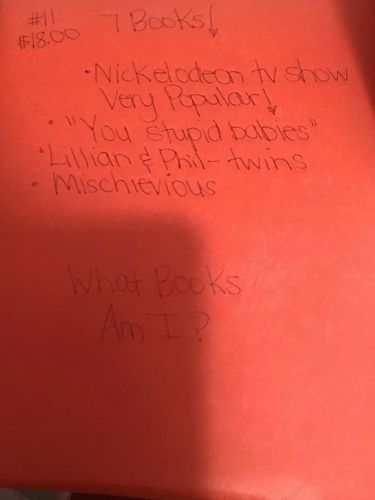 #11 7 Books!
$18.00
• Nickelodeon tv show
Very Popular!
• "You stupid babies"
• Lillian & Phil - twins
• Mischievious
What Books
Am I?